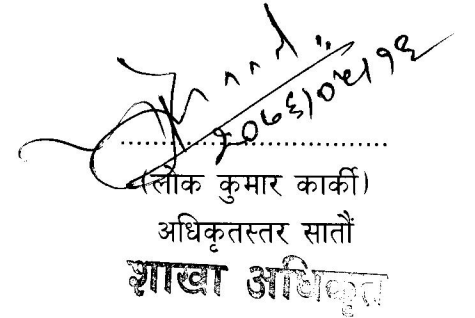 २०७६।०५।१६
.......................................
(लोक कुमार कार्की)
अधिकृतस्तर सातौं
शाखा अधिकृत